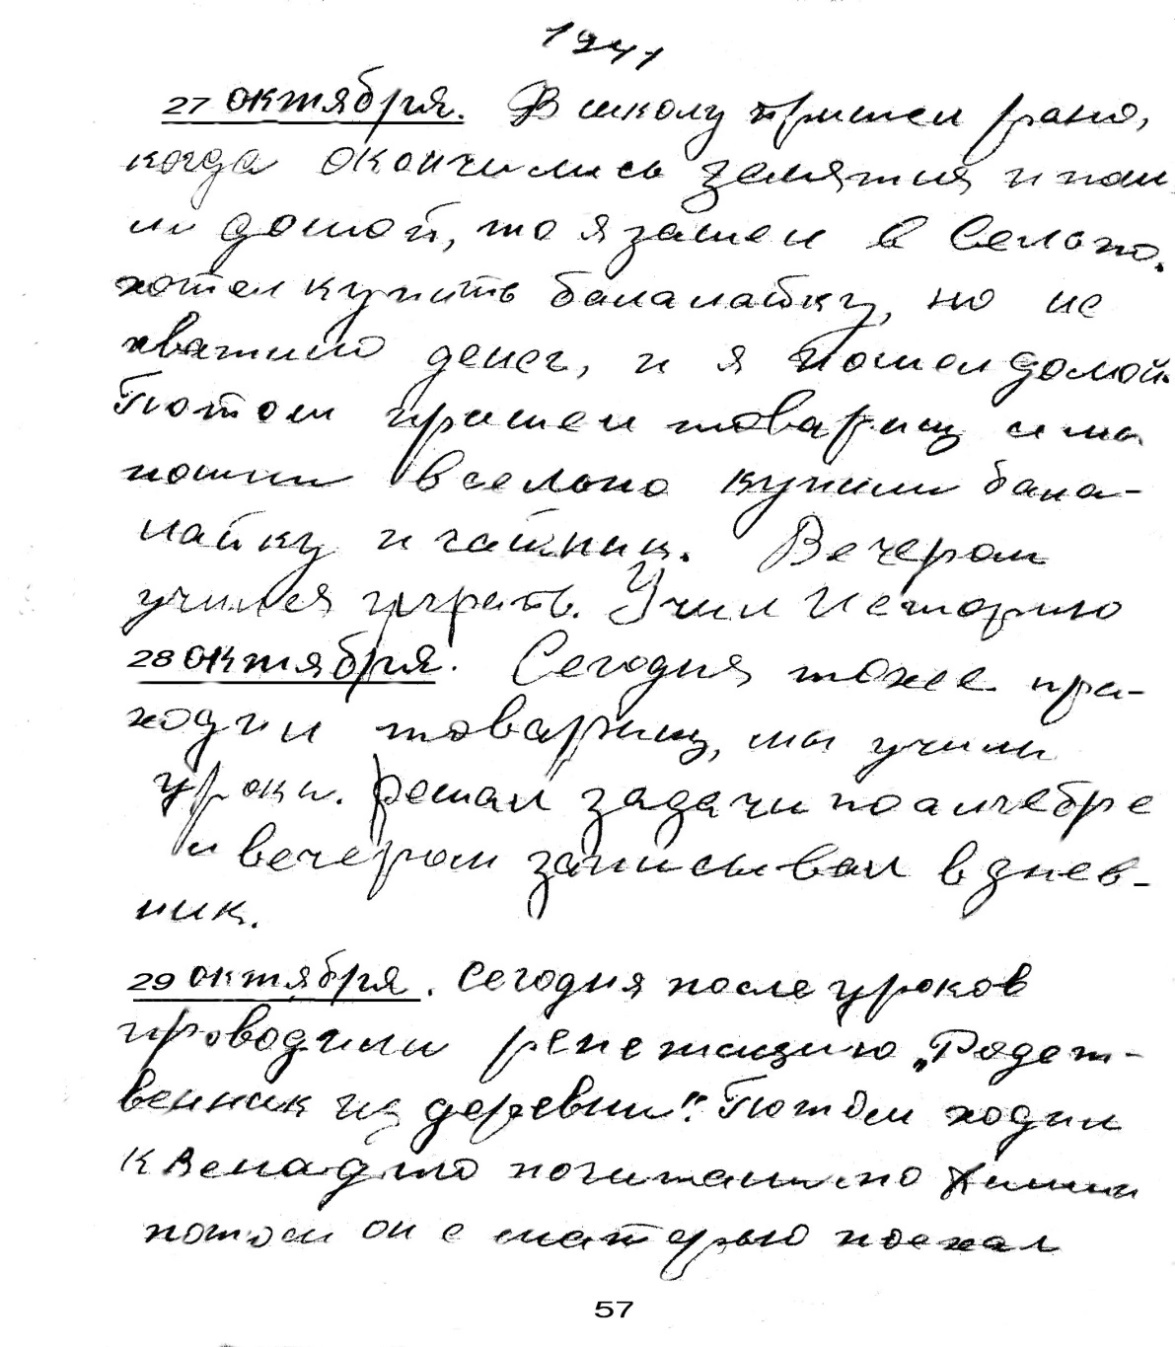 1941
27 октября. В школу пришел рано,
когда окончились занятия и пош
ли домой, то я зашел в Сельпо.
хотел купить балалайку, но не
хватило денег, и я пошел домой.
Потом пришел товарищ и мы
пошли в сельпо купили бала-
лайку и чайник. Вечером
учился играть. Учил Историю
28 октября. Сегодня тоже при-
ходил товарищ, мы учили
уроки. решал задачи по алгебре
и вечером записывал в днев-
ник.
29 октября. Сегодня после уроков
проводили репетицию „Родст-
венник из деревни". Потом ходил
к почитали по Химии
потом он с матерью поехал
57